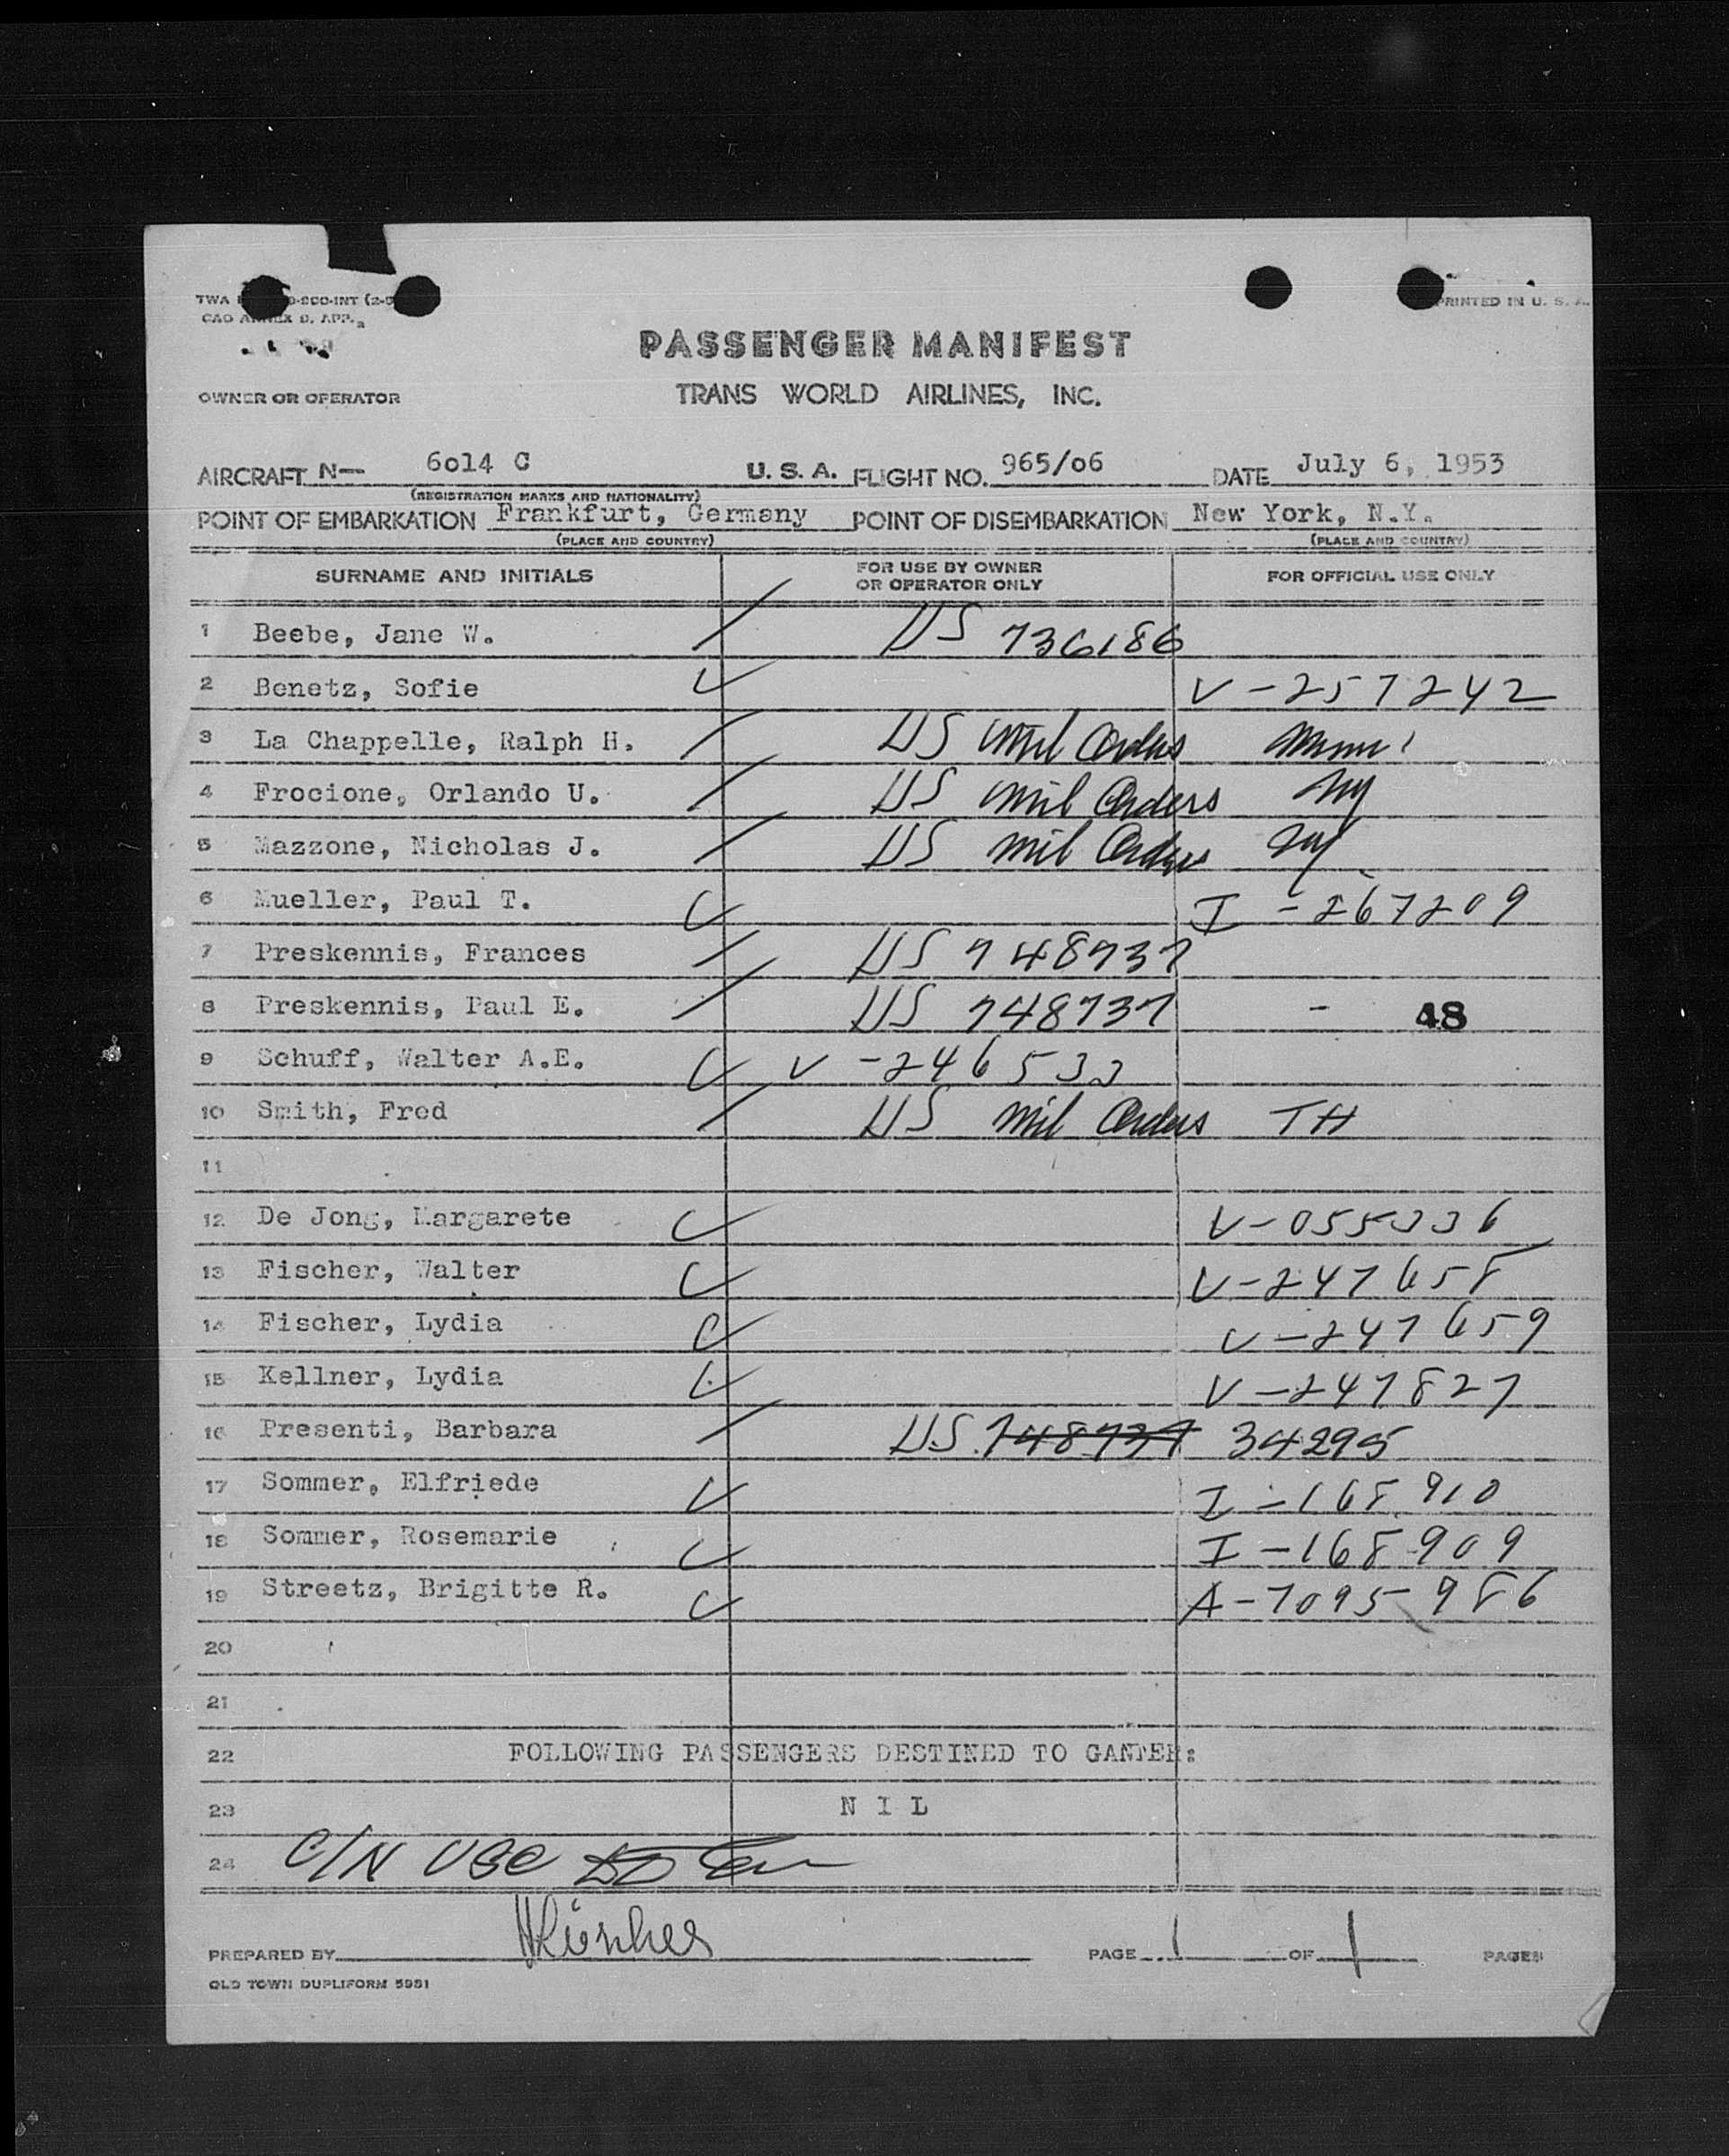 PRINTED IN U. S. A.
PASSENGER MANIFEST
OWNER OR OPERATOR TRANS WORLD AIRLINES, INC.
AIRCRAFT N— 6o14 C U. S. A. FLIGHT NO. 965/o6 DATE July 6, 1953
(REGISTRATION MARKS AND NATIONALITY)
POINT OF EMBARKATION Frankfurt, Germany POINT OF DISEMBARKATION New York, N.Y.
(PLACE AND COUNTRY) (PLACE AND COUNTRY)
SURNAME AND INITIALS FOR USE BY OWNER OR OPERATOR ONLY FOR OFFICIAL USE ONLY
1 Beebe, Jane W. US 736186
2 Benetz, Sofie V-257242
3 La Chappelle, Ralph H. US Mil Orders
4 Frocione, Orlando U. US Mil Orders NY
5 Mazzone, Nicholas J. US Mil Orders NY
6 Mueller, Paul T. I-267209
7 Preskennis, Frances US 748737
8 Preskennis, Paul E. US 748737 - 48
9 Schuff, Walter A.E. V-246533
10 Smith, Fred US Mil Orders TH
11
12 De Jong, Margarete V-055336
13 Fischer, Walter V-247658
14 Fischer, Lydia V-247659
15 Kellner, Lydia V-247827
16 Presenti, Barbara U.S. 748737 34295
17 Sommer, Elfriede I-168910
18 Sommer, Rosemarie I-168909
19 Streetz, Brigitte R. A-7095986
20
21
22 FOLLOWING PASSENGERS DESTINED TO GANDER:
23 N I L
24 C/N USC
PREPARED BY PAGE 1 OF 1 PAGES
OLD TOWN DUPLIFORM 5981